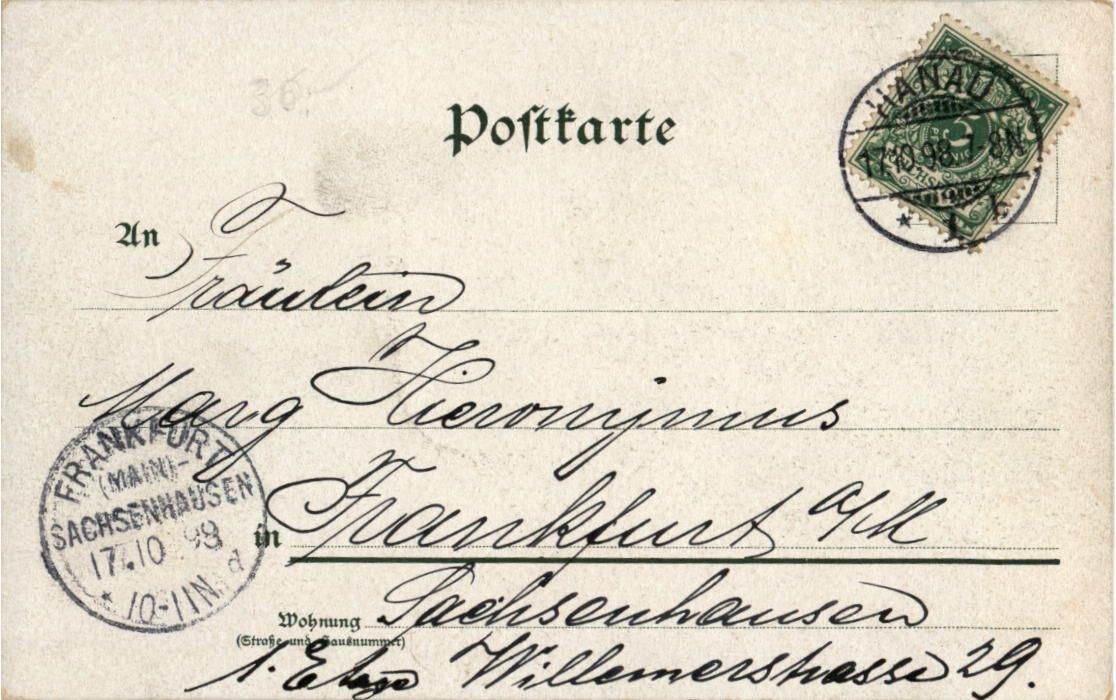 36.-
Postkarte
HANAU
17.10.98.7-8N.
* 1 k
An
Fräulein
Marg Hieronymus
FRANKFURT
(MAIN)-
SACHSENHAUSEN
17.10 98
* 10-11N. d
in Frankfurt a/M
Wohnung Sachsenhausen
(Straße und Hausnummer)
1. Etage Willemerstrasse 29.